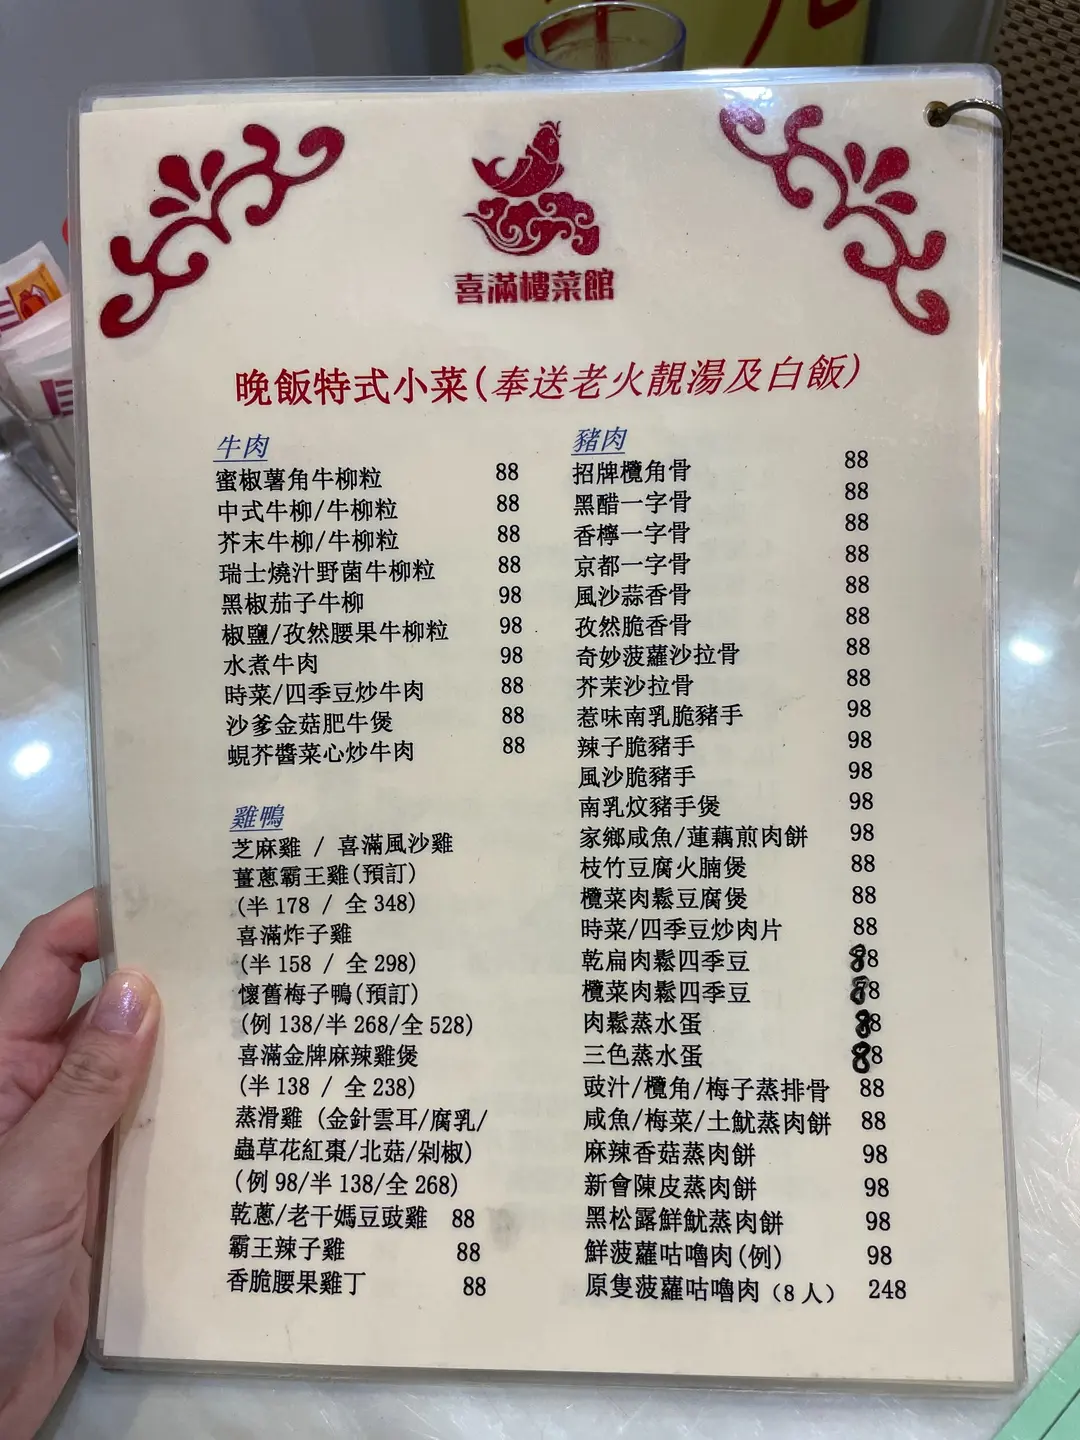 喜滿樓菜館
晚飯特式小菜(奉送老火靚湯及白飯)
牛肉
蜜椒薯角牛柳粒 88
中式牛柳/牛柳粒 88
芥末牛柳/牛柳粒 88
瑞士燒汁野菌牛柳粒 88
黑椒茄子牛柳 98
椒鹽/孜然腰果牛柳粒 98
水煮牛肉 98
時菜/四季豆炒牛肉 88
沙爹金菇肥牛煲 88
蜆芥醬菜心炒牛肉 88
雞鴨
芝麻雞 / 喜滿風沙雞
薑蔥霸王雞(預訂)
(半 178 / 全 348)
喜滿炸子雞
(半 158 / 全 298)
懷舊梅子鴨(預訂)
(例 138/半 268/全 528)
喜滿金牌麻辣雞煲
(半 138 / 全 238)
蒸滑雞 (金針雲耳/腐乳/
蟲草花紅棗/北菇/剁椒)
(例 98/半 138/全 268)
乾蔥/老干媽豆豉雞 88
霸王辣子雞 88
香脆腰果雞丁 88
豬肉
招牌欖角骨 88
黑醋一字骨 88
香檸一字骨 88
京都一字骨 88
風沙蒜香骨 88
孜然脆香骨 88
奇妙菠蘿沙拉骨 88
芥茉沙拉骨 88
惹味南乳脆豬手 98
辣子脆豬手 98
風沙脆豬手 98
南乳炆豬手煲 98
家鄉咸魚/蓮藕煎肉餅 98
枝竹豆腐火腩煲 88
欖菜肉鬆豆腐煲 88
時菜/四季豆炒肉片 88
乾扁肉鬆四季豆 88
欖菜肉鬆四季豆 88
肉鬆蒸水蛋 88
三色蒸水蛋 88
豉汁/欖角/梅子蒸排骨 88
咸魚/梅菜/土魷蒸肉餅 88
麻辣香菇蒸肉餅 98
新會陳皮蒸肉餅 98
黑松露鮮魷蒸肉餅 98
鮮菠蘿咕嚕肉(例) 98
原隻菠蘿咕嚕肉（8 人） 248